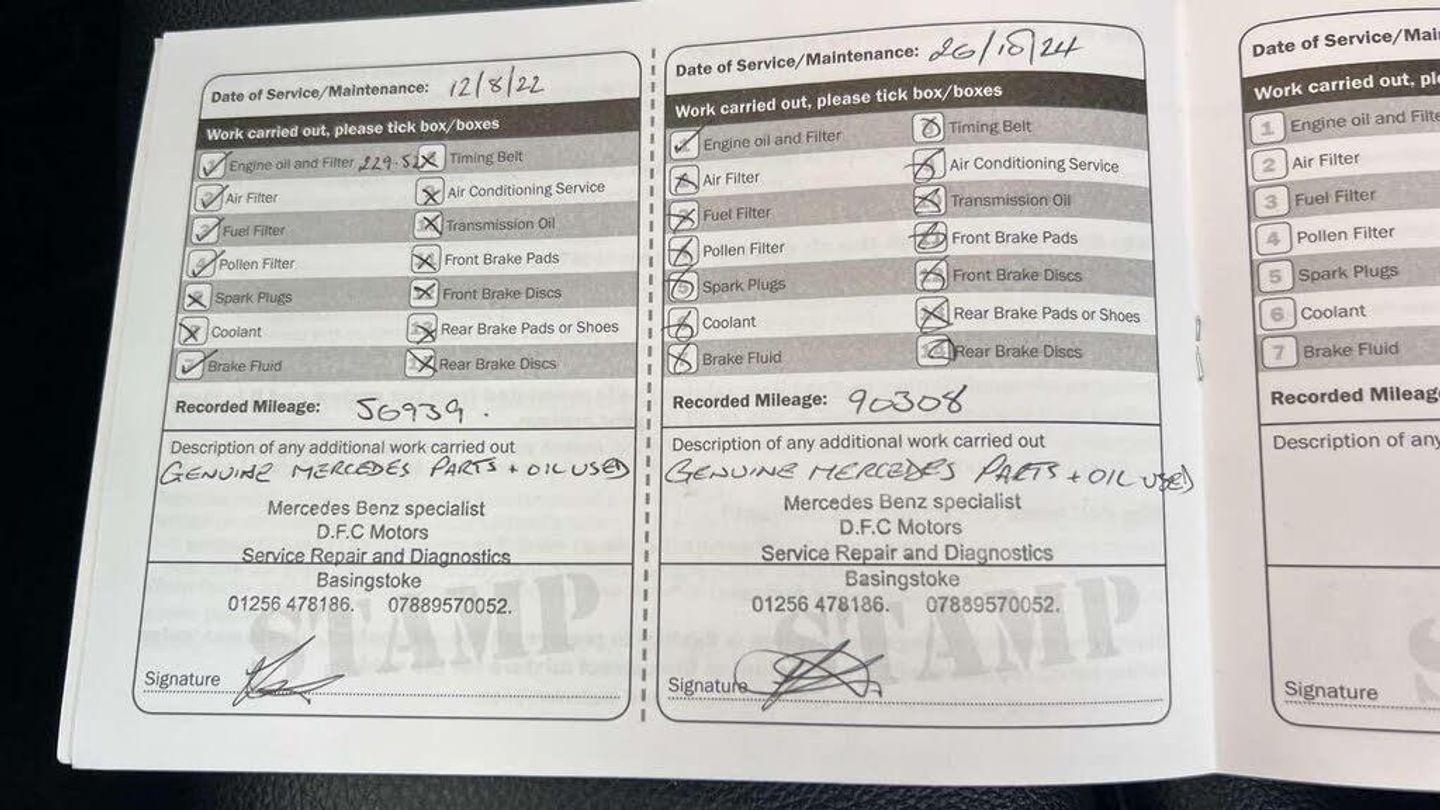 Date of Service/Maintenance: 12/8/22
Work carried out, please tick box/boxes
1 Engine oil and Filter 229.52 Timing Belt
2 Air Filter Air Conditioning Service
3 Fuel Filter Transmission Oil
4 Pollen Filter Front Brake Pads
Spark Plugs Front Brake Discs
Coolant Rear Brake Pads or Shoes
7 Brake Fluid Rear Brake Discs
Recorded Mileage: 56939.
Description of any additional work carried out
GENUINE MERCEDES PARTS + OIL USED
Mercedes Benz specialist
D.F.C Motors
Service Repair and Diagnostics
Basingstoke
01256 478186. 07889570052.
STAMP
Signature
Date of Service/Maintenance: 26/10/24
Work carried out, please tick box/boxes
Engine oil and Filter Timing Belt
Air Filter Air Conditioning Service
Fuel Filter Transmission Oil
Pollen Filter Front Brake Pads
5 Spark Plugs Front Brake Discs
Coolant Rear Brake Pads or Shoes
Brake Fluid 14 Rear Brake Discs
Recorded Mileage: 90308
Description of any additional work carried out
GENUINE MERCEDES PARTS + OIL USED
Mercedes Benz specialist
D.F.C Motors
Service Repair and Diagnostics
Basingstoke
01256 478186. 07889570052.
STAMP
Signature
Date of Service/Mai
Work carried out, pl
1 Engine oil and Filte
2 Air Filter
3 Fuel Filter
4 Pollen Filter
5 Spark Plugs
6 Coolant
7 Brake Fluid
Recorded Mileag
Description of any
Signature